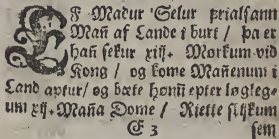 EF Madur Selur frialsann
Mañ af Lande i burt / þa er
hañ sekur xiij. Morkum vid
Kong / og kome Mañenum i
Land aptur / og bæte honū epter løgleg-
um xij. Maña Dome / Riette slijkum
E 3 sem